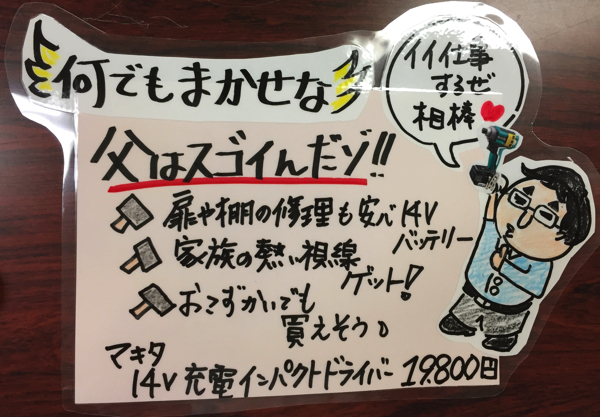 何でもまかせな
イイ仕事
するぜ
相棒
父はスゴイんだゾ!!
扉や棚の修理も安心14V
バッテリー
家族の熱い視線
ゲット!
おこずかいでも
買えそう。
マキタ
14V充電インパクトドライバー 19,800円